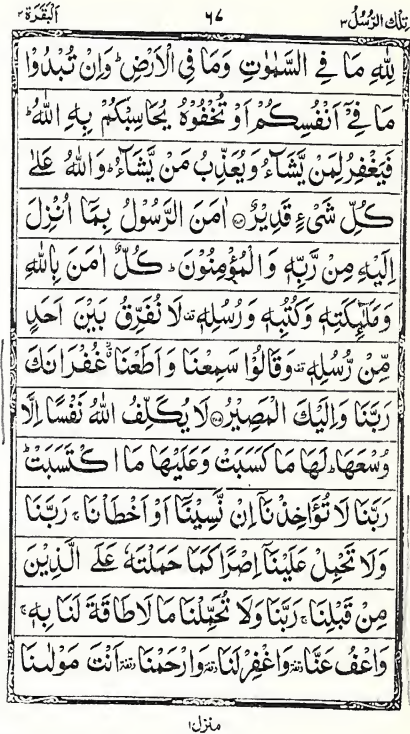 تِلْكَ الرُّسُلُ ٣ ٦٧ اَلْبَقَرَة ٢
لِلّٰهِ مَا فِي السَّمٰوٰتِ وَمَا فِي الْاَرْضِ ؕ وَاِنْ تُبْدُوْا
مَا فِيْۤ اَنْفُسِكُمْ اَوْ تُخْفُوْهُ يُحَاسِبْكُمْ بِهِ اللّٰهُ ؕ
فَيَغْفِرُ لِمَنْ يَّشَآءُ وَيُعَذِّبُ مَنْ يَّشَآءُ ؕ وَاللّٰهُ عَلٰى
كُلِّ شَيْءٍ قَدِيْرٌ ﴿۲۸۴﴾ اٰمَنَ الرَّسُوْلُ بِمَاۤ اُنْزِلَ
اِلَيْهِ مِنْ رَّبِّهٖ وَالْمُؤْمِنُوْنَ ؕ كُلٌّ اٰمَنَ بِاللّٰهِ
وَمَلٰٓئِكَتِهٖ وَكُتُبِهٖ وَرُسُلِهٖ ۟ لَا نُفَرِّقُ بَيْنَ اَحَدٍ
مِّنْ رُّسُلِهٖ ۟ وَقَالُوْا سَمِعْنَا وَاَطَعْنَا ۫ غُفْرَانَكَ
رَبَّنَا وَاِلَيْكَ الْمَصِيْرُ ﴿۲۸۵﴾ لَا يُكَلِّفُ اللّٰهُ نَفْسًا اِلَّا
وُسْعَهَا ؕ لَهَا مَا كَسَبَتْ وَعَلَيْهَا مَا اكْتَسَبَتْ ؕ
رَبَّنَا لَا تُؤَاخِذْنَاۤ اِنْ نَّسِيْنَاۤ اَوْ اَخْطَاْنَا ۚ رَبَّنَا
وَلَا تَحْمِلْ عَلَيْنَاۤ اِصْرًا كَمَا حَمَلْتَهٗ عَلَى الَّذِيْنَ
مِنْ قَبْلِنَا ۚ رَبَّنَا وَلَا تُحَمِّلْنَا مَا لَا طَاقَةَ لَنَا بِهٖ ۚ
وَاعْفُ عَنَّا ۥوقفة وَاغْفِرْ لَنَا ۥوقفة وَارْحَمْنَا ۥوقفة اَنْتَ مَوْلٰىنَا
منزل ١